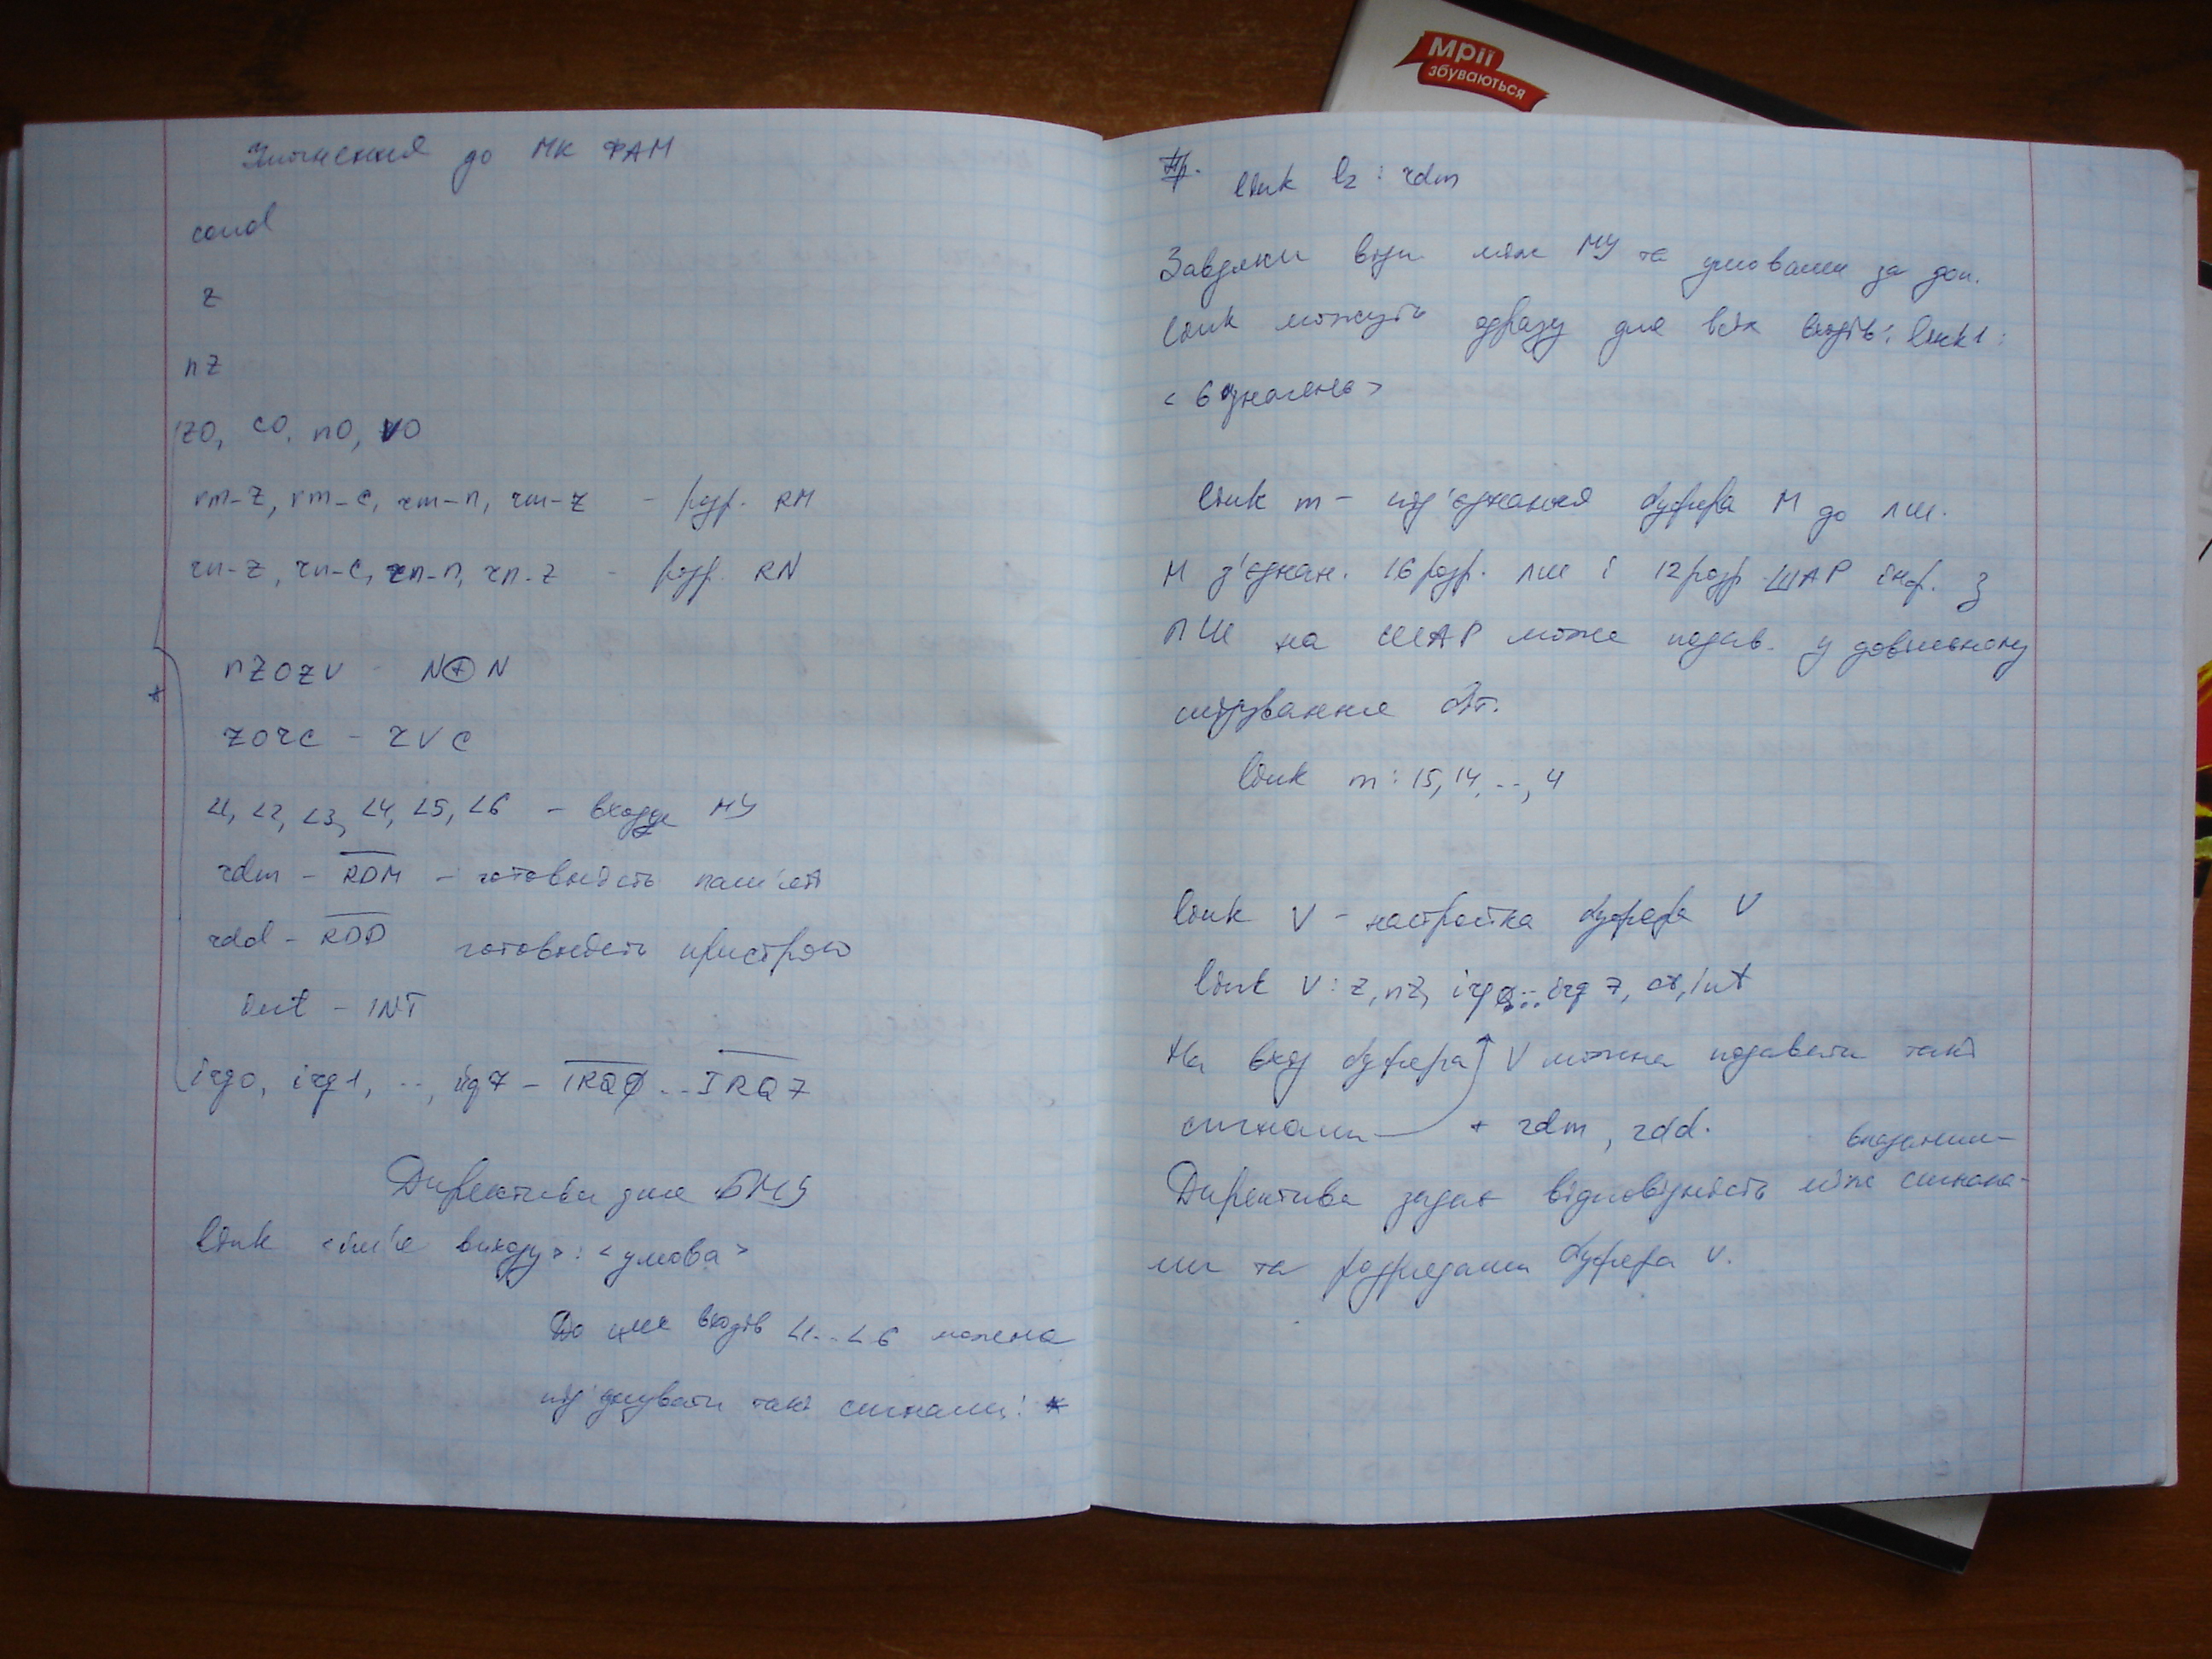 Уточнення до МК ФАМ
cond
z
nz
z0, c0, n0, v0
rm-z, rm-c, rm-n, rm-z - розр. RM
rn-z, rn-c, rn-n, rn-z - розр. RN
nzozv - N⊕N
zorc - z v c
L1, L2, L3, L4, L5, L6 - входи МУ
rdm - RDM - готовність пам'яті
rdd - RDD готовність пристрою
int - INT
irq0, irq1, .., irq7 - IRQ0 .. IRQ7
*
Директиви для БМУ
link <ім'я виходу> : <умова>
До цих входів L1..L6 можна
під'єднувати такі сигнали: *
Мрії
збуваються
Пр. link l2 : rdm
Завдяки відп. між МУ та умовами за доп.
link можуть одразу для всіх входів: link1 :
<6 значень>
link m - під'єднання буфера М до ЛШ.
М з'єднан. 16 розр. ЛШ і 12 розр ШАР інф. з
ЛШ на ШАР може подав. у довільному
біт.
link m : 15, 14, .., 4
link V - настройка буфера V
link V : z, nz, irq0..irq7, ct, int
На вхід буфера V можна подавати такі
сигнали + rdm, rdd.
Директива задає відповідність між вказаними сигнала-
ми та розрядами буфера V.